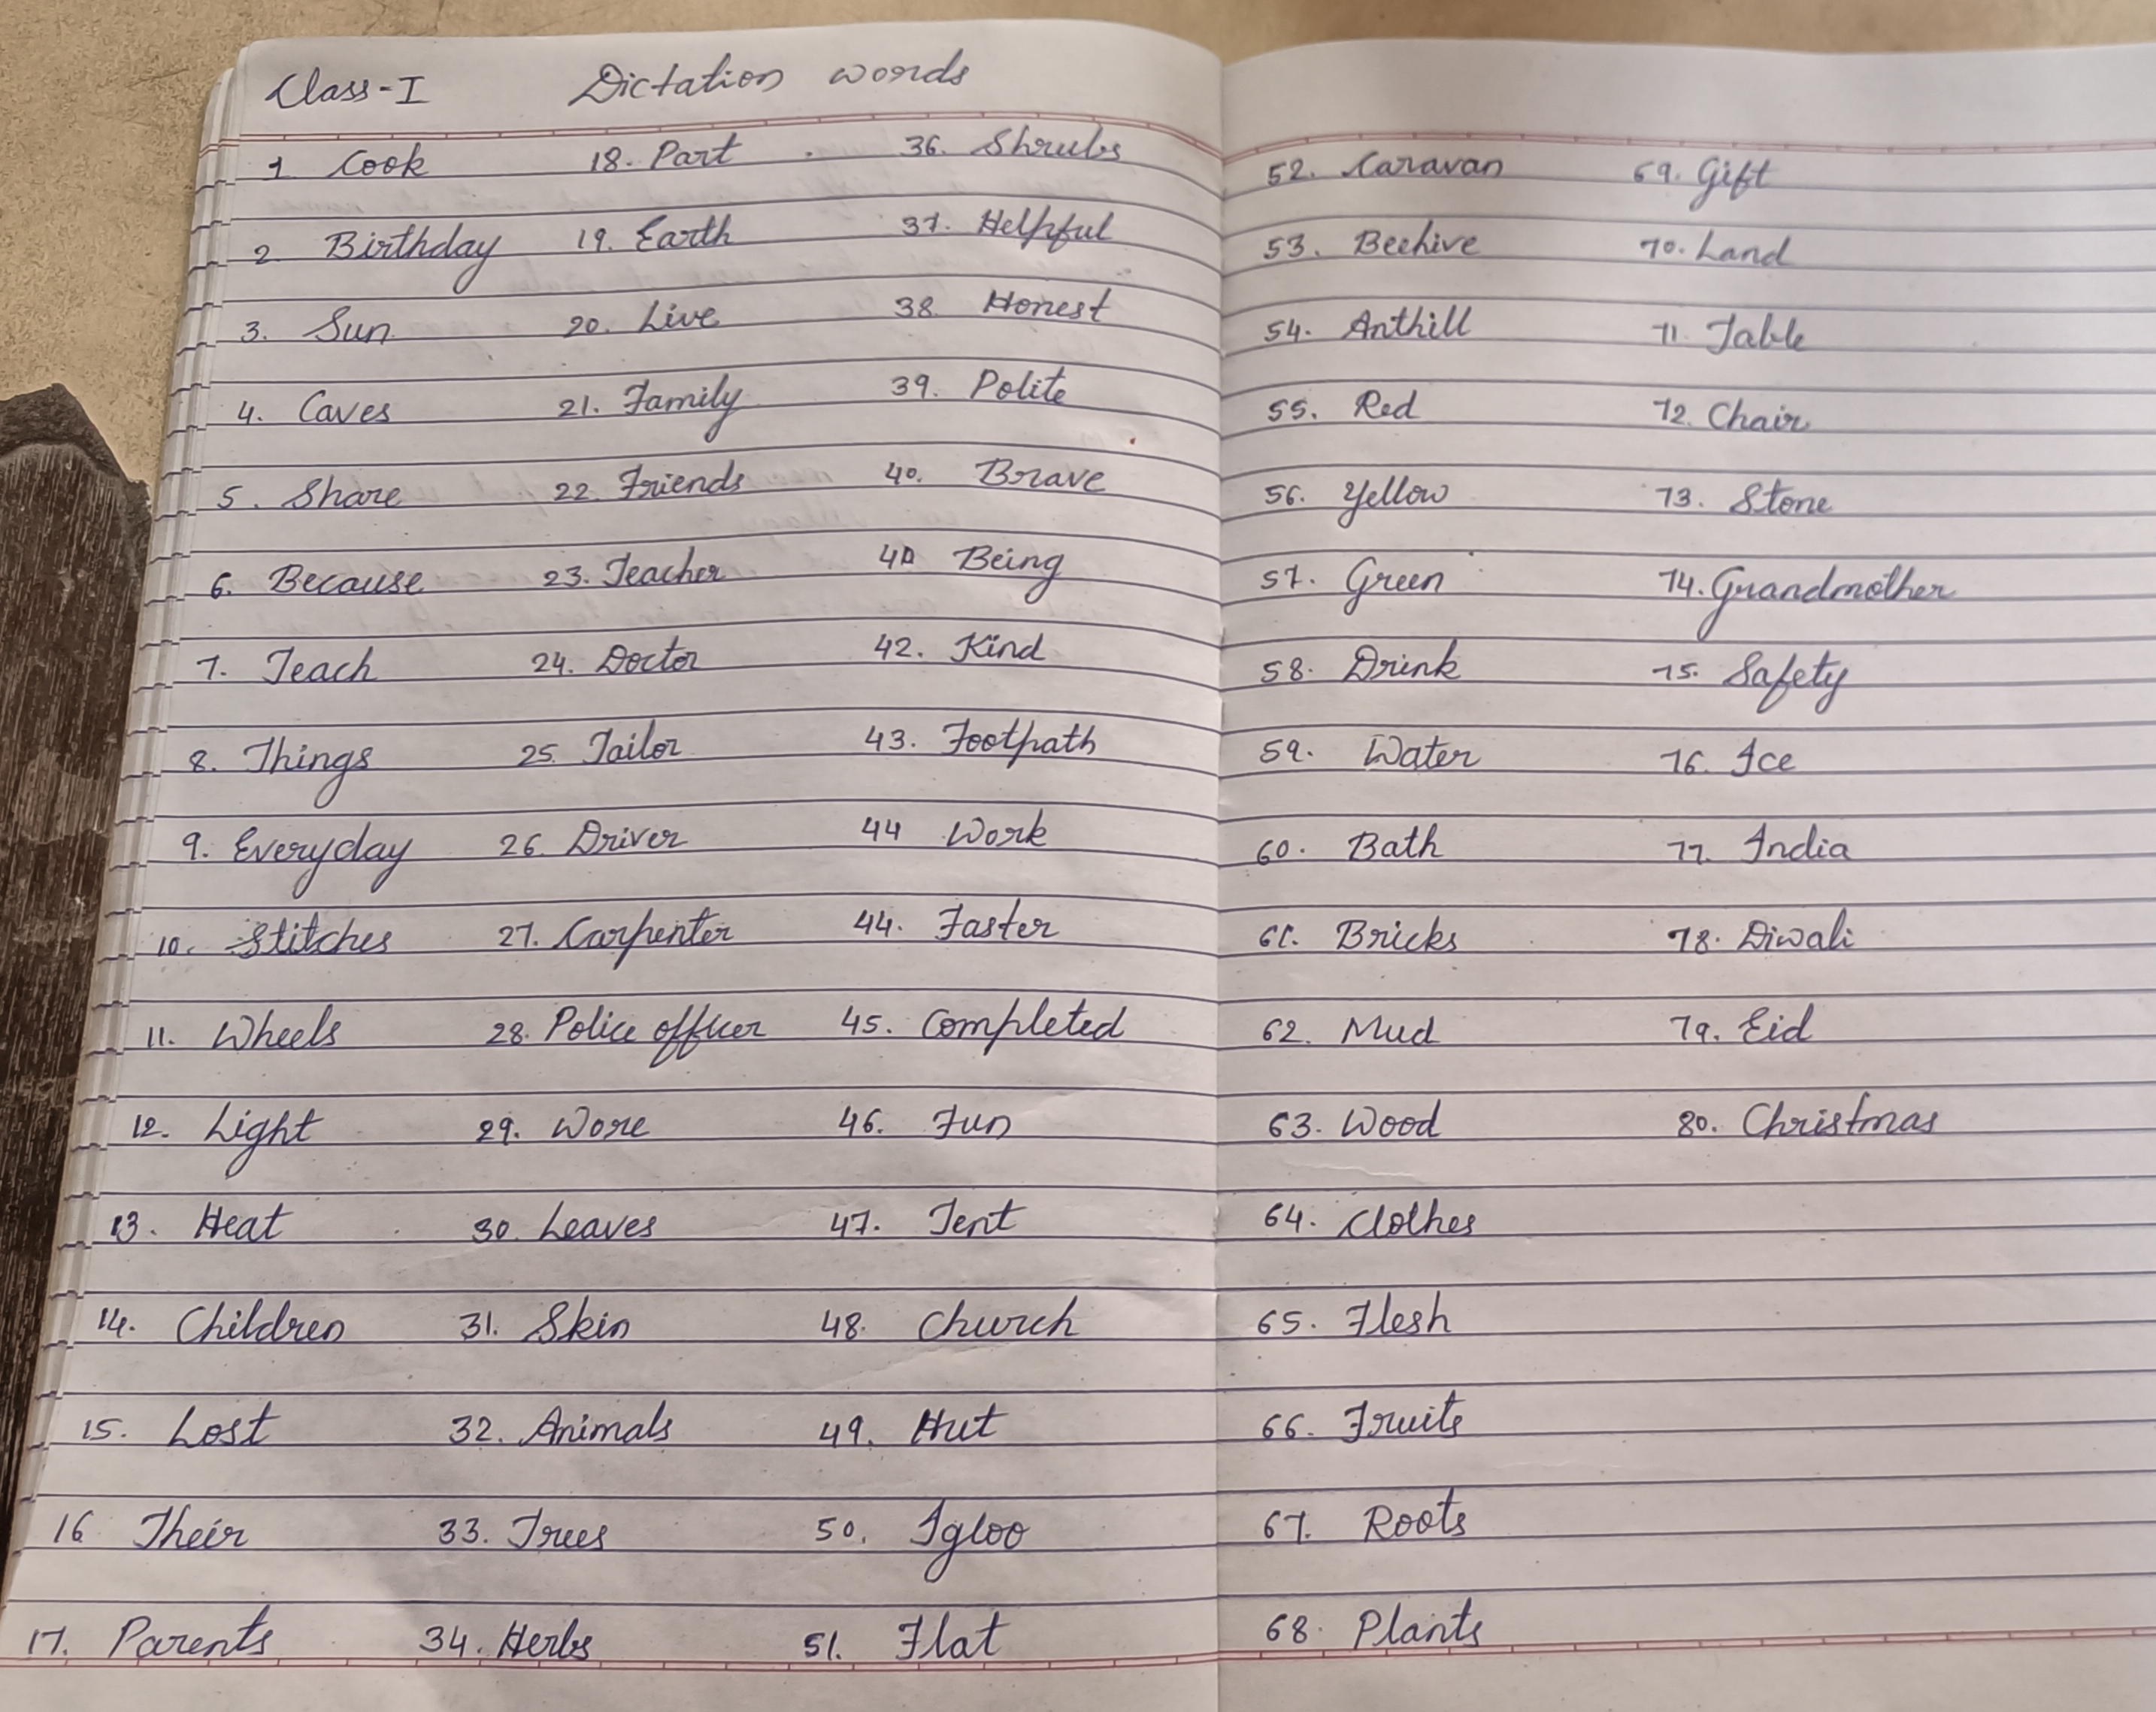 Class-I Dictation words
1. Cook
2. Birthday
3. Sun
4. Caves
5. Share
6. Because
7. Teach
8. Things
9. Everyday
10. Stitches
11. Wheels
12. Light
13. Heat
14. Children
15. Lost
16 Their
17. Parents
18. Part
19. Earth
20. Live
21. Family
22. Friends
23. Teacher
24. Doctor
25. Tailor
26. Driver
27. Carpenter
28. Police officer
29. Wore
30. Leaves
31. Skin
32. Animals
33. Trees
34. Herbs
36. Shrubs
37. Helpful
38. Honest
39. Polite
40. Brave
41 Being
42. Kind
43. Footpath
44 Work
44. Faster
45. Completed
46. Fun
47. Tent
48. Church
49. Hut
50. Igloo
51. Flat
52. Caravan
53. Beehive
54. Anthill
55. Red
56. Yellow
57. Green
58. Drink
59. Water
60. Bath
61. Bricks
62. Mud
63. Wood
64. Clothes
65. Flesh
66. Fruits
67. Roots
68. Plants
69. Gift
70. Land
71. Table
72. Chair
73. Stone
74. Grandmother
75. Safety
76. Ice
77. India
78. Diwali
79. Eid
80. Christmas